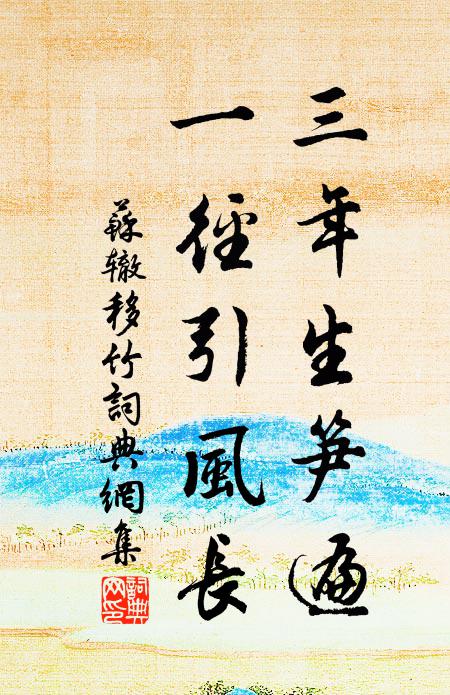 三年生笋遍
一徑引風長
蘇辙移竹詞典網集
詞典